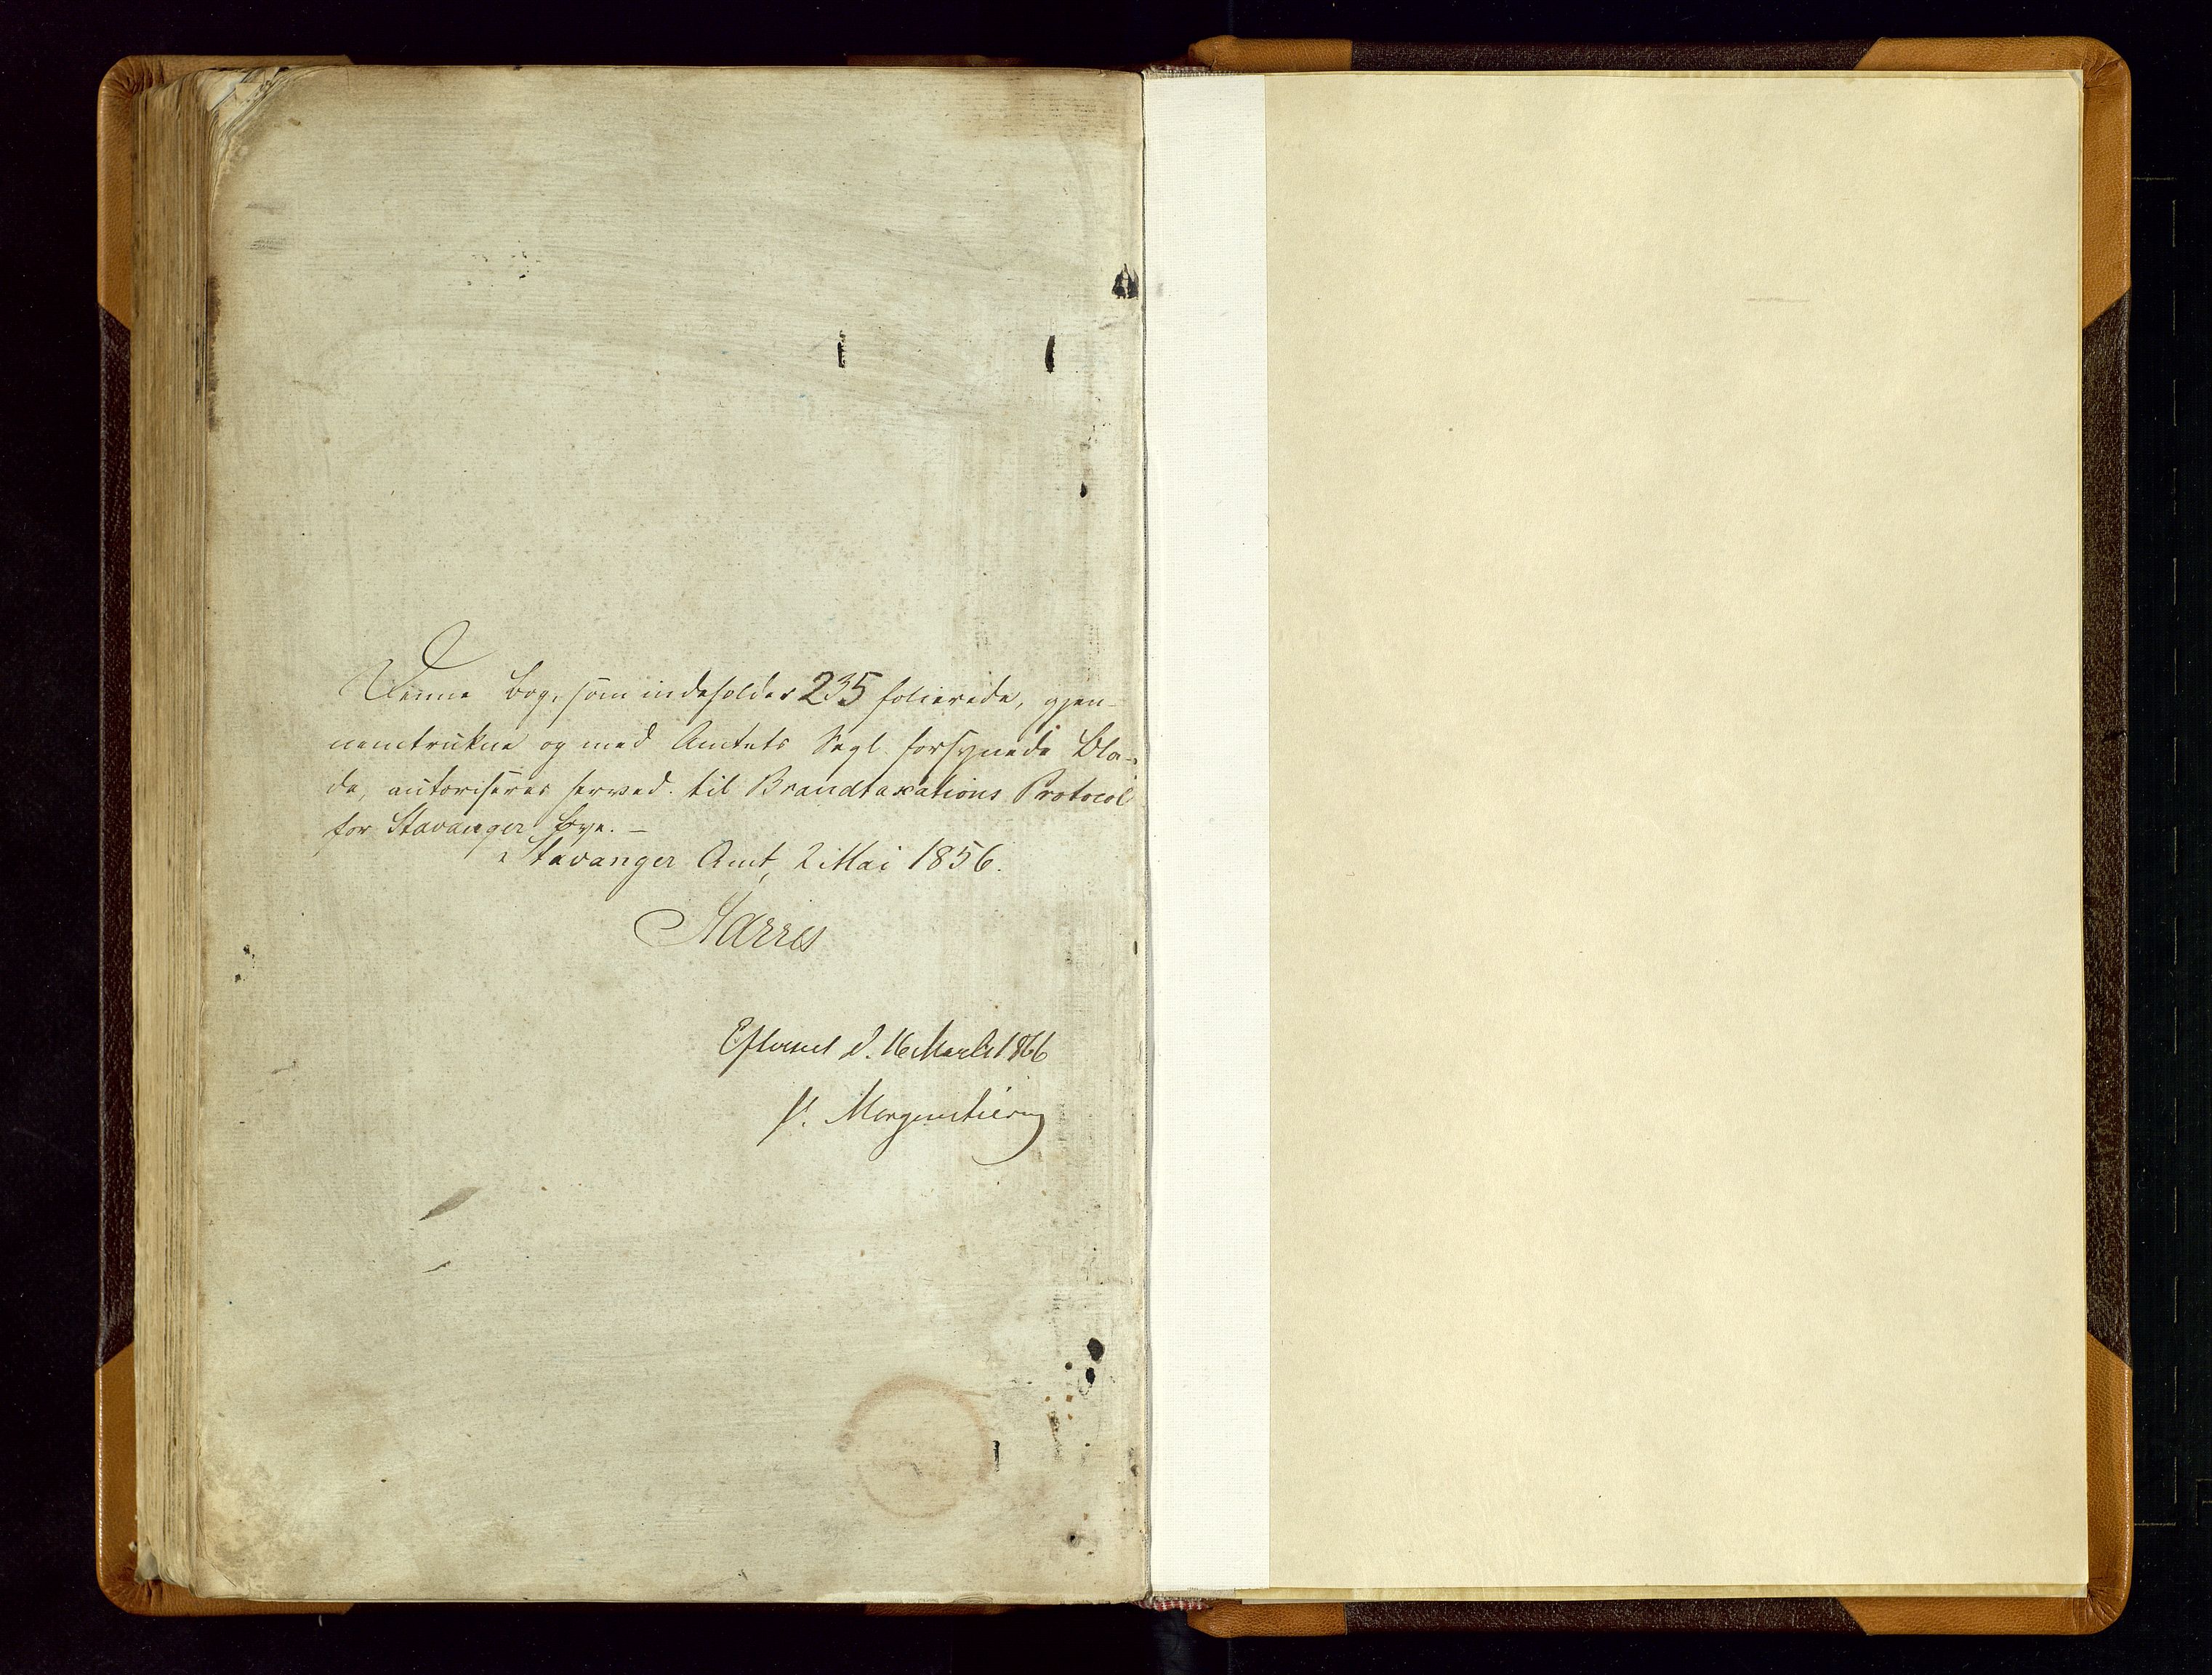 Denne Bog, som indeholder 235 folierede, gjen-
nemtrukne og med Amtets Segl forsynede Bla-
de, autoriseres herved til Brandtaxations Protocol
for Stavanger Bye. –
Stavanger Amt, 2 Mai 1856.
Aarres
Efterseet d. 16 Marts 1866
Morgenstierne